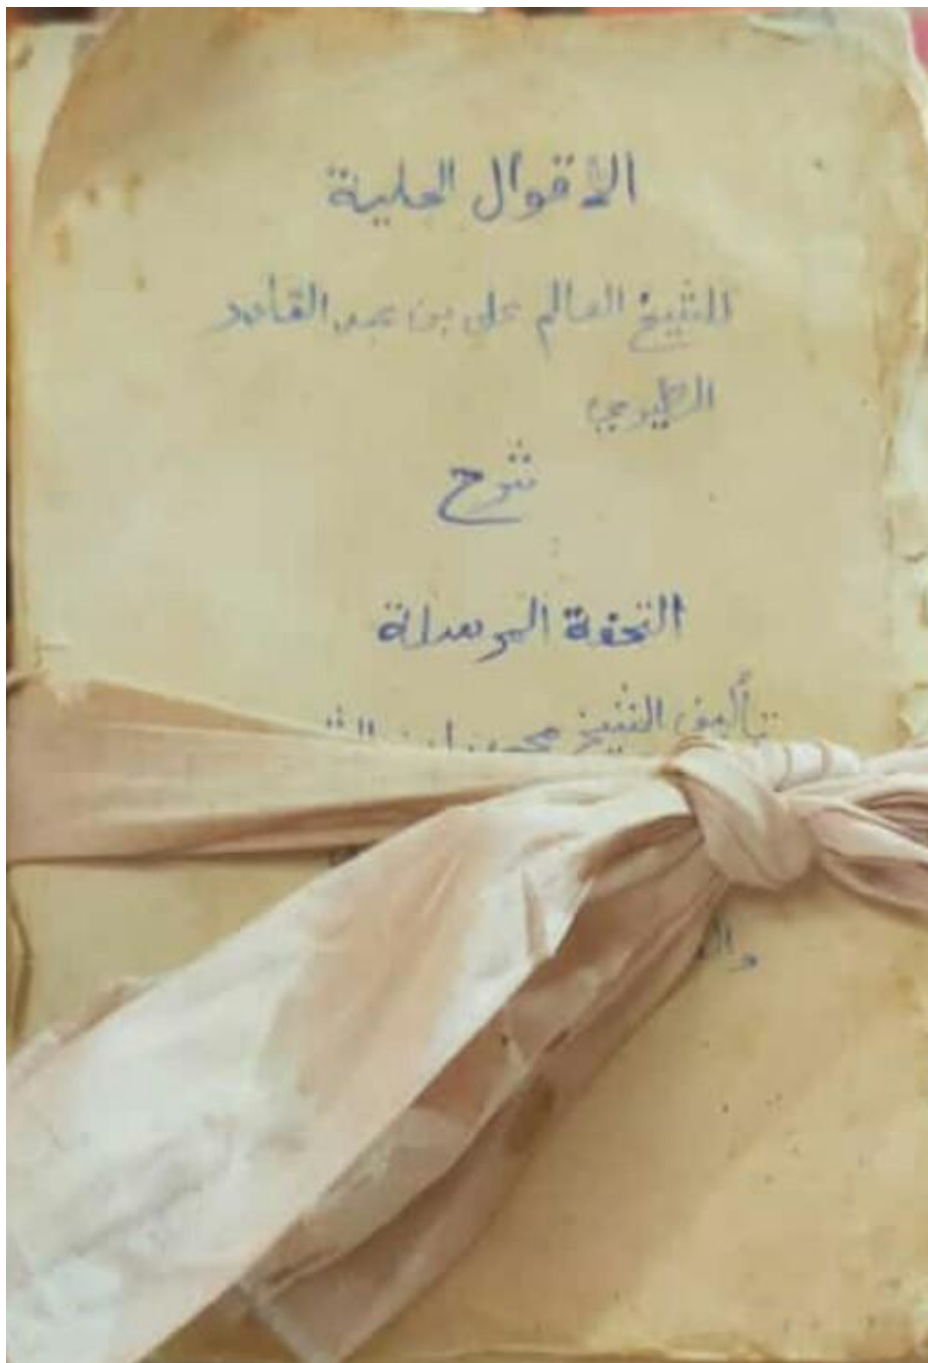 الأقوال الجلية
للشيخ العالم علي بن عبد القادر
شرح
التحفة المرسلة
تأليف الشيخ محمد بن